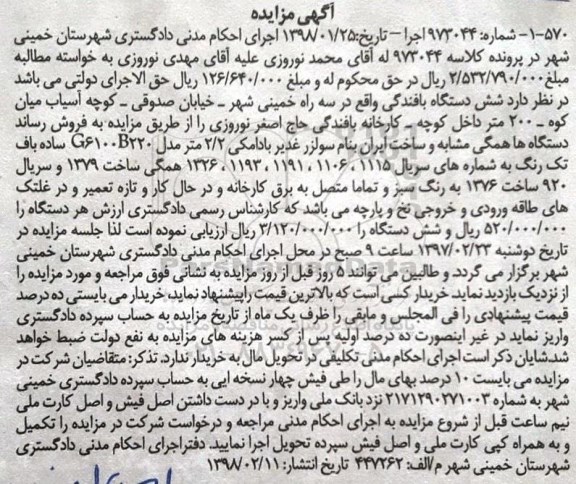 آگهی مزایده
۱-۵۷۰- شماره: ۹۷۳۰۴۴ اجرا – تاریخ:۱۳۹۸/۰۱/۲۵ اجرای احکام مدنی دادگستری شهرستان خمینی
شهر در پرونده کلاسه ۹۷۳۰۴۴ له آقای محمد نوروزی علیه آقای مهدی نوروزی به خواسته مطالبه
مبلغ ۲/۵۳۲/۷۹۰/۰۰۰ ریال در حق محکوم له و مبلغ ۱۲۶/۶۴۰/۰۰۰ ریال حق الاجرای دولتی می باشد
در نظر دارد شش دستگاه بافندگی واقع در سه راه خمینی شهر – خیابان صدوقی – کوچه آسیاب میان
کوه – ۲۰۰ متر داخل کوچه – کارخانه بافندگی حاج اصغر نوروزی را از طریق مزایده به فروش رساند
دستگاه ها همگی مشابه و ساخت ایران بنام سولزر غدیر بادامکی ۲/۲ متر مدل G۶۱۰۰B۲۲۰ ساده باف
تک رنگ به شماره های سریال ۱۱۱۵ ، ۱۱۰۶ ، ۱۱۹۱ ، ۱۱۹۳ ، ۱۳۲۶ همگی ساخت ۱۳۷۹ و سریال
۹۲۰ ساخت ۱۳۷۶ به رنگ سبز و تماما متصل به برق کارخانه و در حال کار و تازه تعمیر و در غلتک
های طاقه ورودی و خروجی نخ و پارچه می باشد که کارشناس رسمی دادگستری ارزش هر دستگاه را
۵۲۰/۰۰۰/۰۰۰ ریال و شش دستگاه را ۳/۱۲۰/۰۰۰/۰۰۰ ریال ارزیابی نموده است لذا جلسه مزایده در
تاریخ دوشنبه ۱۳۹۷/۰۲/۲۳ ساعت ۹ صبح در محل اجرای احکام مدنی دادگستری شهرستان خمینی
شهر برگزار می گردد. و طالبین می توانند ۵ روز قبل از روز مزایده به نشانی فوق مراجعه و مورد مزایده را
از نزدیک بازدید نماید. خریدار کسی است که بالاترین قیمت را پیشنهاد نماید، خریدار می بایستی ده درصد
قیمت پیشنهادی را فی المجلس و مابقی را ظرف یک ماه از تاریخ مزایده به حساب سپرده دادگستری
واریز نماید در غیر اینصورت ده درصد اولیه پس از کسر هزینه های مزایده به نفع دولت ضبط خواهد
شد.شایان ذکر است اجرای احکام مدنی تکلیفی در تحویل مال به خریدار ندارد. تذکر: متقاضیان شرکت در
مزایده می بایست ۱۰ درصد بهای مال را طی فیش چهار نسخه ایی به حساب سپرده دادگستری خمینی
شهر به شماره ۲۱۷۱۲۹۰۲۷۱۰۰۳ نزد بانک ملی واریز و با در دست داشتن اصل فیش و اصل کارت ملی
نیم ساعت قبل از شروع مزایده به اجرای احکام مدنی مراجعه و درخواست شرکت در مزایده را تکمیل
و به همراه کپی کارت ملی و اصل فیش سپرده تحویل اجرا نمایید. دفتراجرای احکام مدنی دادگستری
شهرستان خمینی شهر م/الف: ۴۴۷۲۶۲ تاریخ انتشار: ۱۳۹۸/۰۲/۱۱